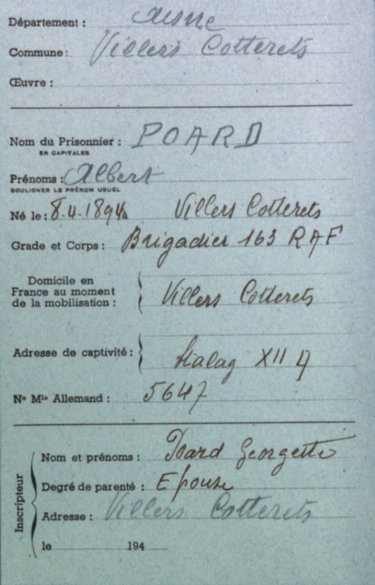 Département : Aisne
Commune : Villers Cotterets
Œuvre :
Nom du Prisonnier : POARD
EN CAPITALES
Prénoms : Albert
SOULIGNER LE PRÉNOM USUEL
Né le : 8.4.1894 à Villers Cotterets
Grade et Corps : Brigadier 163 RAF
Domicile en
France au moment
de la mobilisation : Villers Cotterets
Adresse de captivité : Stalag XII
Nº Mle Allemand : 5647
Inscripteur
Nom et prénoms : Poard Georgette
Degré de parenté : Epouse
Adresse : Villers Cotterets
le 194